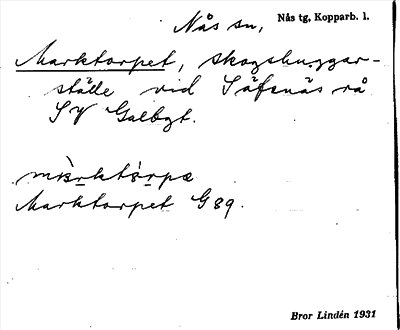 Nås sn,
Nås tg, Kopparb. l.
Marktorpet, skogshuggar-
ställe vid Säfsnäs rå
SV Galbgt.
Marktorpet G 89.
Bror Lindén 1931